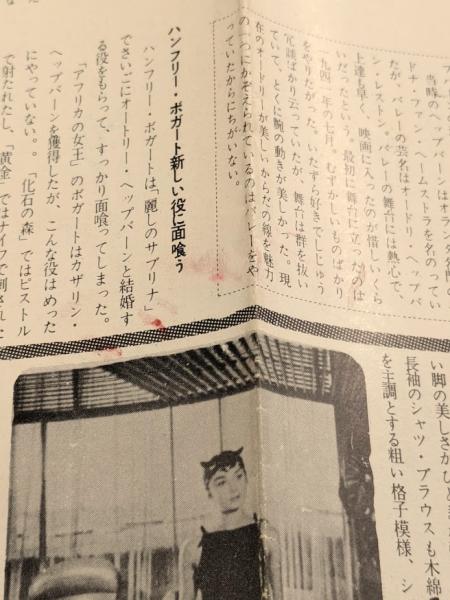 当時のヘップバーンは
ドナ・ファン・ヘームストラを名のってい
たが、バレーの芸名はオードリ・ヘップバ
ン・レストン。バレーの舞台には熱心で、
上達も早く、映画に入ったのが惜しいくら
いだったという。最初に舞台に立ったのは
一九四一年の七月。むずかしいものばかり
をやりたがった。いたずら好きでしじゅう
冗談ばかり云っていたが、舞台は群を抜い
ていて、とくに腕の動きが美しかった。現
在のオードリーが美しいからだの線を魅力
の一つにかぞえられているのはバレーをや
っていたからにちがいない。
ハンフリー・ボガート新しい役に面喰う
ハンフリー・ボガートは「麗しのサブリナ」
でさいごにオートリー・ヘップバーンと結婚す
る役をもらって、すっかり面喰ってしまった。
「アフリカの女王」のボガートはカザリン・
ヘップバーンを獲得したが、こんな役はめった
にやっていない。。「化石の森」ではピストル
で射たれたし、「黄金」ではナイフで刺された
い脚の美しさがひと
長袖のシャツ・ブラウスも木綿
を主調とする粗い格子模様、シ